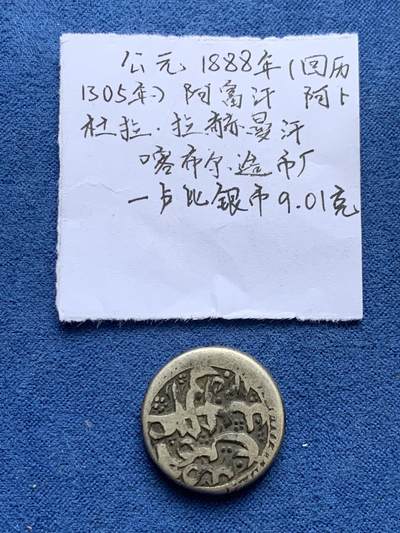 公元 1888年(回历
1305年) 阿富汗 阿卜
杜拉·拉赫曼汗
喀布尔造币厂
一卢比银币9.01克